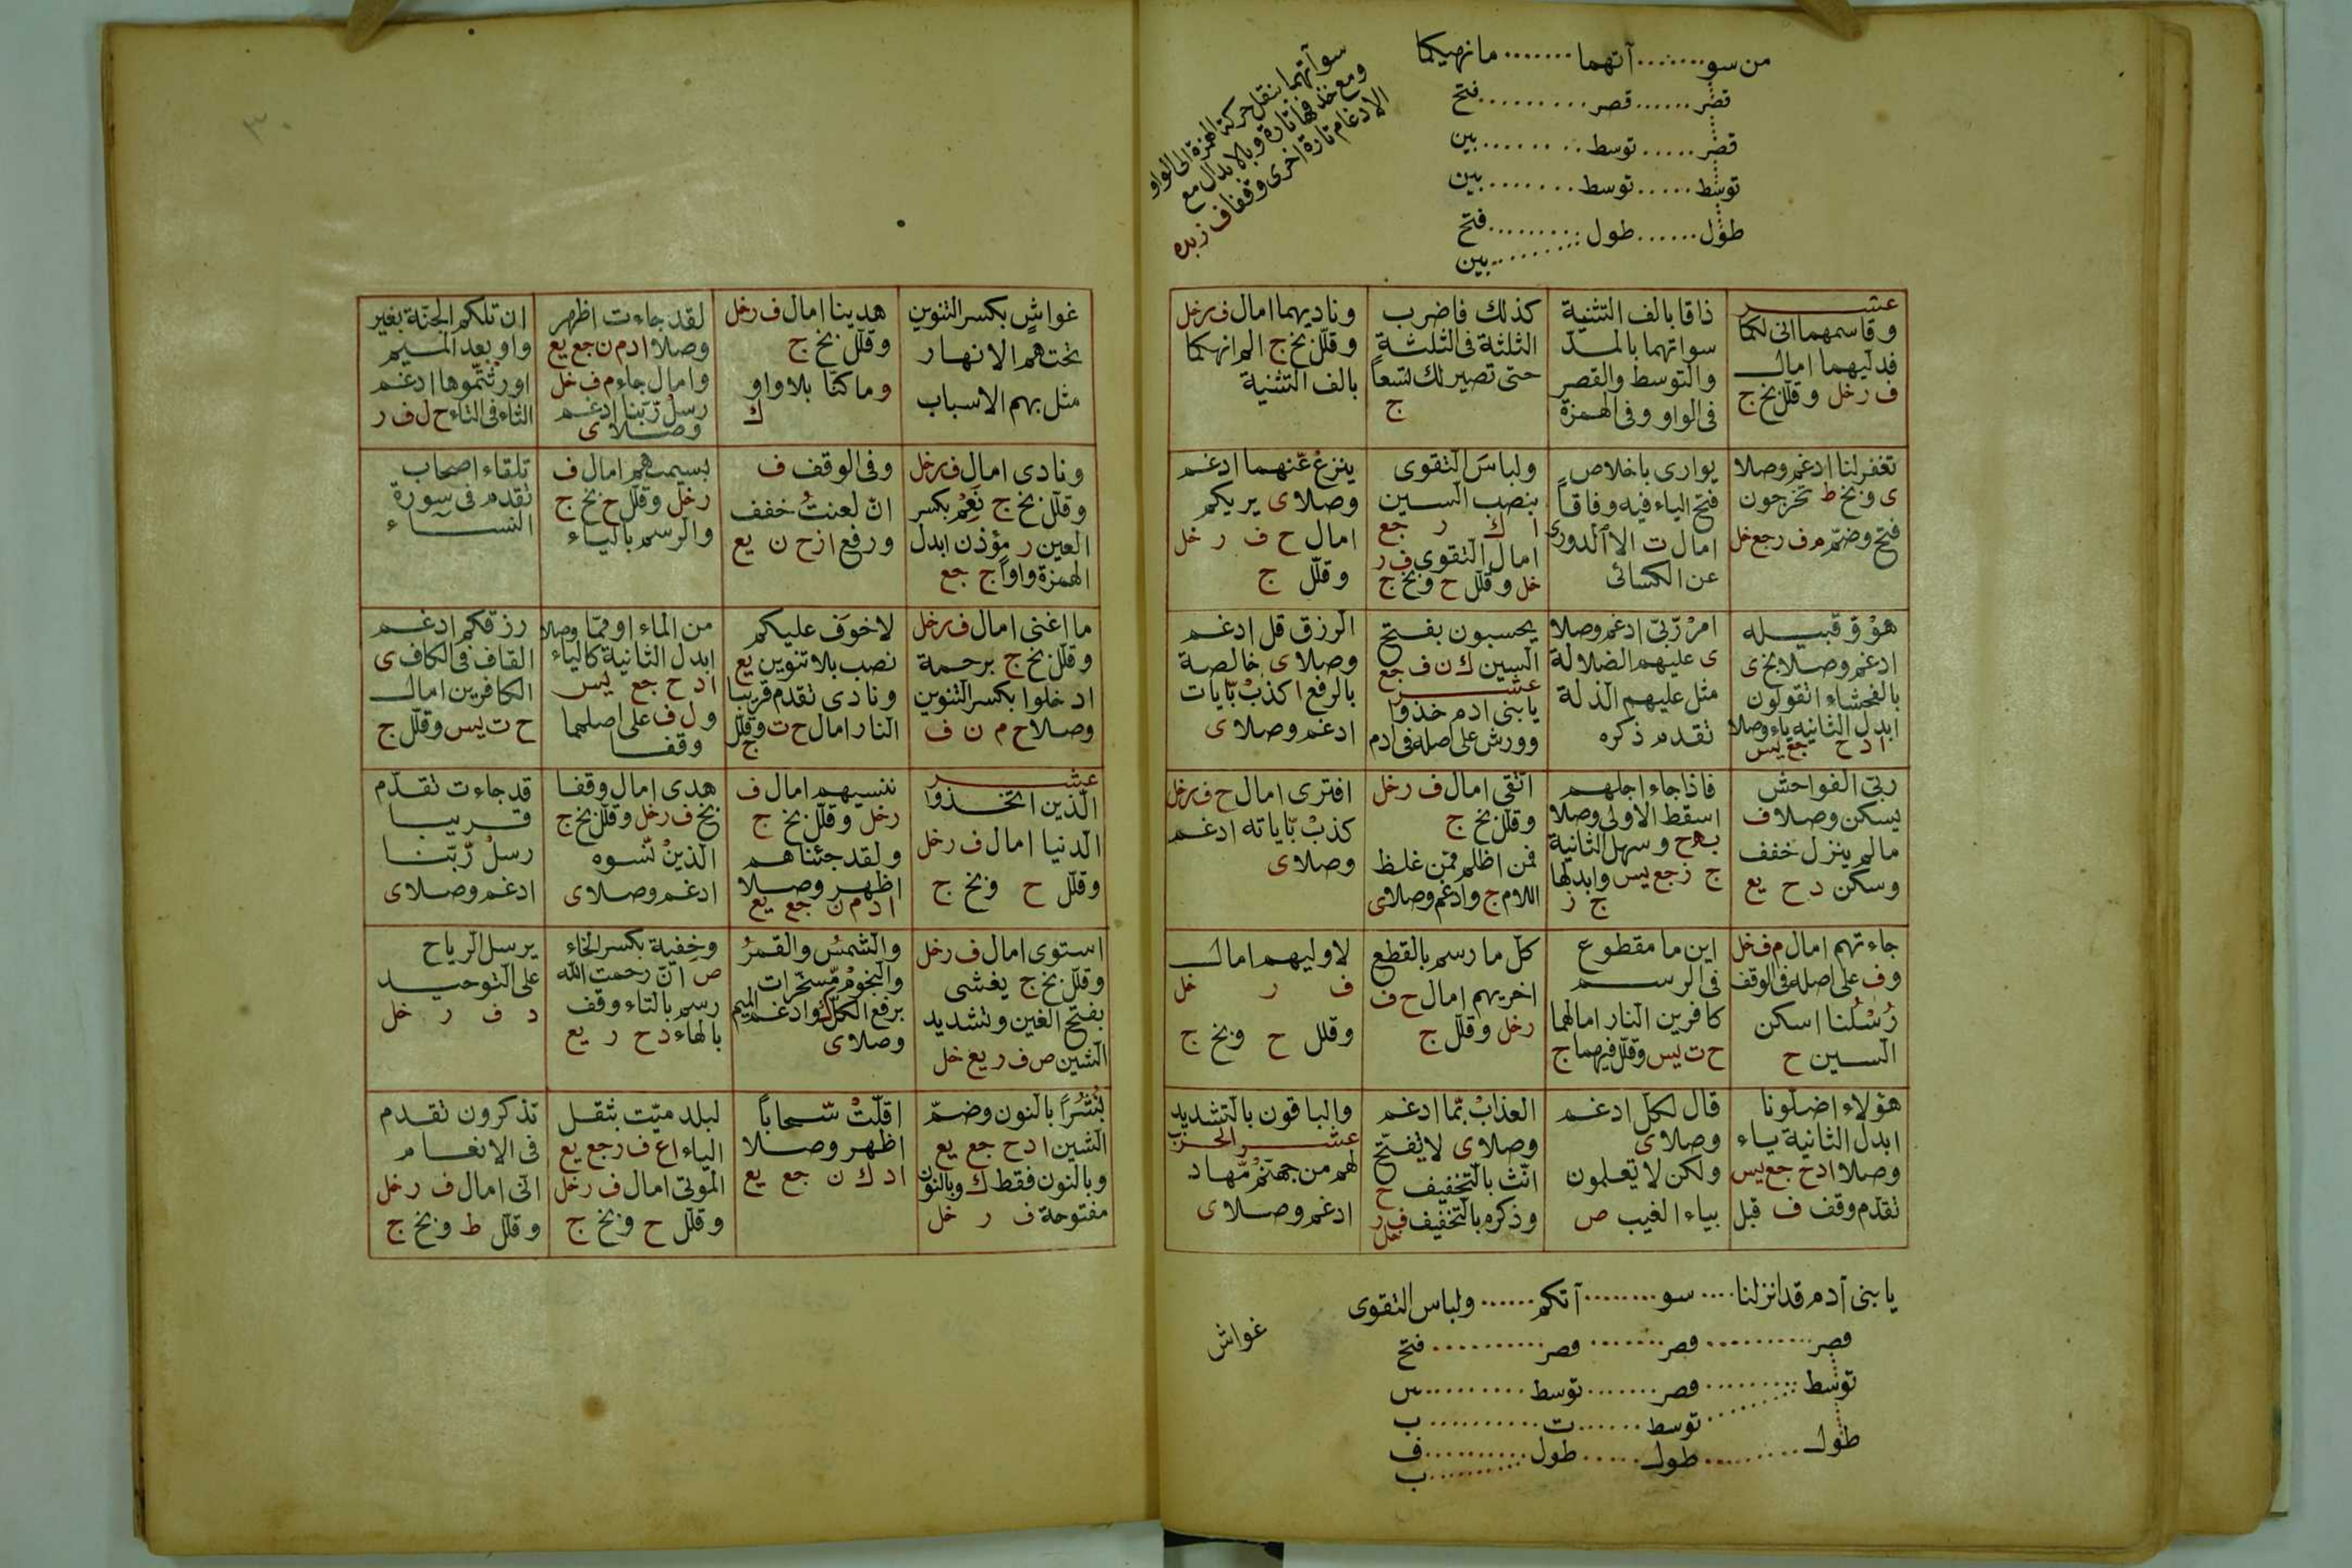 من سو ....... آتهما ....... ما نهيكما
قصر ...... قصر ......... فتح
قصر ..... توسط ........ بين
توسط ..... توسط ....... بين
طول ...... طول ......... فتح
......... بين
سوآتهما بنقل حركة الهمزة الى الواو
ومع حذفها تارة وبالابدال مع
الادغام تارة اخرى وقفا ف زبده
عشر
وقاسمهما انى لكما
فدليهما امال
ف ر خل وقلل بخ ج
ذاقا بالف التثنية
سواتهما بالمد
والتوسط والقصر
فى الواو وفى الهمزة
كذلك فاضرب
الثلثة فى الثلثة
حتى تصير لك تسعاً
ج
وناديهما امال ف ر خل
وقلل بخ ج الم انهكما
بالف التثنية
تغفر لنا ادغم وصلا
ى وبخ ط تخرجون
فتح وضم م ف ر جع خل
يوارى باخلاص
فتح الياء فيه وفاقاً
امال ت الا الدورى
عن الكسائى
ولباسَ التقوى
بنصب السين
ا ك ر جع
امال التقوى ف ر
خل وقلل ح وبخ ج
ينزعُ عّنهما ادغم
وصلا ى يريكم
امال ح ف ر خل
وقلّل ج
هوْ وّ قبيله
ادغم وصلا بخ ى
بالفحشاء اتقولون
ابدل الثانيه ياء وصلا
ا د ح جع يس
امرْ رّبّى ادغم وصلا
ى عليهم الضلالة
مثل عليهم الذلة
تقدم ذكره
يحسبون بفتح
السين ك ن ف جع
عشر
يا بنى ادم خذوا
وورش على اصله فى ادم
الرزق قل ادغم
وصلا ى خالصة
بالرفع ا كذبْ بّايات
ادغم وصلا ى
ربّى الفواحش
يسكن وصلا ف
ما لم ينزل خفف
وسكن د ح يع
فاذا جاء اجلهم
اسقط الاولى وصلا
ب ه ح وسهل الثانية
ج ز جع يس وابدلها
ج ز
اتّقى امال ف ر خل
وقلل بخ ج
فمن اظلم ممّن غلظ
اللام ج وادغم وصلا ى
افترى امال ح ف ر خل
كذبْ بّاياته ادغم
وصلا ى
جاءتهم امال م ف خل
وف على اصله فى الوقف
رُسْلنا اسكن
السين ح
اين ما مقطوع
فى الرسم
كافرين النار امالهما
ح ت يس وقلل فيهما ج
كلّ ما رسم بالقطع
اخريهم امال ح ف
ر خل وقلّل ج
لاوليهم امال
ف ر خل
وقلل ح وبخ ج
هؤلاء اضلونا
ابدل الثانية ياء
وصلا ا د ح جع يس
تقدّم وقف ف قبل
قال لكلّ ادغم
وصلا ى
ولكن لا تعلمون
بياء الغيب ص
العذابْ بّما ادغم
وصلا ى لا تفتّح
انّث بالتخفيف ح
وذكره بالتخفيف ف ر
خل
والباقون بالتشديد
عشر الحزب
لهم من جهنّمْ مّهاد
ادغم وصلا ى
يا بنى آدم قد انزلنا .... سو ........ آتكم ...... ولباس التقوى
قصر .......... قصر ....... قصر .......... فتح
توسط ......... قصر ....... توسط .......... س
........ توسط ...... ت .......... ب
طول ......... طول ...... طول .......... ف
......... ب
غواش
غواشٍ بكسر التنوين
تحتهم الانهار
مثل بهم الاسباب
هدينا امال ف ر خل
وقلّل بخ ج
وما كنّا بلا واو
ك
لقد جاءت اظهر
وصلا ا د م ن جع يع
وامال جاء م ف خل
رسلْ رّبنا ادغم
وصلا ى
ان تلكم الجنّة بغير
واو بعد الميم
اورثتموها ادغم
الثاء فى التاء ح ل ف ر
ونادى امال ف ر خل
وقلّل بخ ج نَعِم بكسر
العين ر مؤذن ابدل
الهمزة واواً ج جع
وفى الوقف ف
انّ لعنتُ خفف
ورفع ا ز ح ن يع
بسيميهم امال ف
ر خل وقلّل ح بخ ج
والرسم بالياء
تلقاء اصحاب
تقدم فى سورة
النساء
ما اغنى امال ف ر خل
وقلّل بخ ج برحمة
ادخلوا بكسر التنوين
وصلا ح م ن ف
لا خوفَ عليكم
نصب بلا تنوين يع
ونادى تقدم قريبا
النار امال ح ت وقلّل
ج
من الماء او ممّا وصلا
ابدل الثانية كالياء
ا د ح جع يس
و ل ف على اصلهما
وقفا
رزقكم ادغم
القاف فى الكاف ى
الكافرين امال
ح ت يس وقلّل ج
عشر
الّذين اتّخذوا
الدنيا امال ف ر خل
وقلّل ح وبخ ج
ننسيهم امال ف
ر خل وقلّل بخ ج
ولقد جئناهم
اظهر وصلا
ا د م ن جع يع
هدى امال وقفا
بخ ف ر خل وقلّل بخ ج
الذينْ نّسوه
ادغم وصلا ى
قد جاءت تقدّم
قريبا
رسلْ رّبّنا
ادغم وصلا ى
استوى امال ف ر خل
وقلّل بخ ج يغشى
بفتح الغين وتشديد
الشين ص ف ر يع خل
والشمسُ والقمرُ
والنجومْ مّسخّرات
برفع الكل ك وادغم الميم
وصلا ى
وخِفية بكسر الخاء
ص انّ رحمت الله
رسم بالتاء وقف
بالهاء د ح ر يع
يرسل الرياح
على التوحيد
د ف ر خل
نُشُراً بالنون وضمّ
الشين ا د ح جع يع
وبالنون فقط ك وبالنون
مفتوحة ف ر خل
اقلّتْ سّحاباً
اظهر وصلا
ا د ك ن جع يع
لبلد ميّت بثقل
الياء ا ع ف ر جع يع
الموتى امال ف ر خل
وقلّل ح وبخ ج
تذكرون تقدم
فى الانعام
انّى امال ف ر خل
وقلّل ط وبخ ج